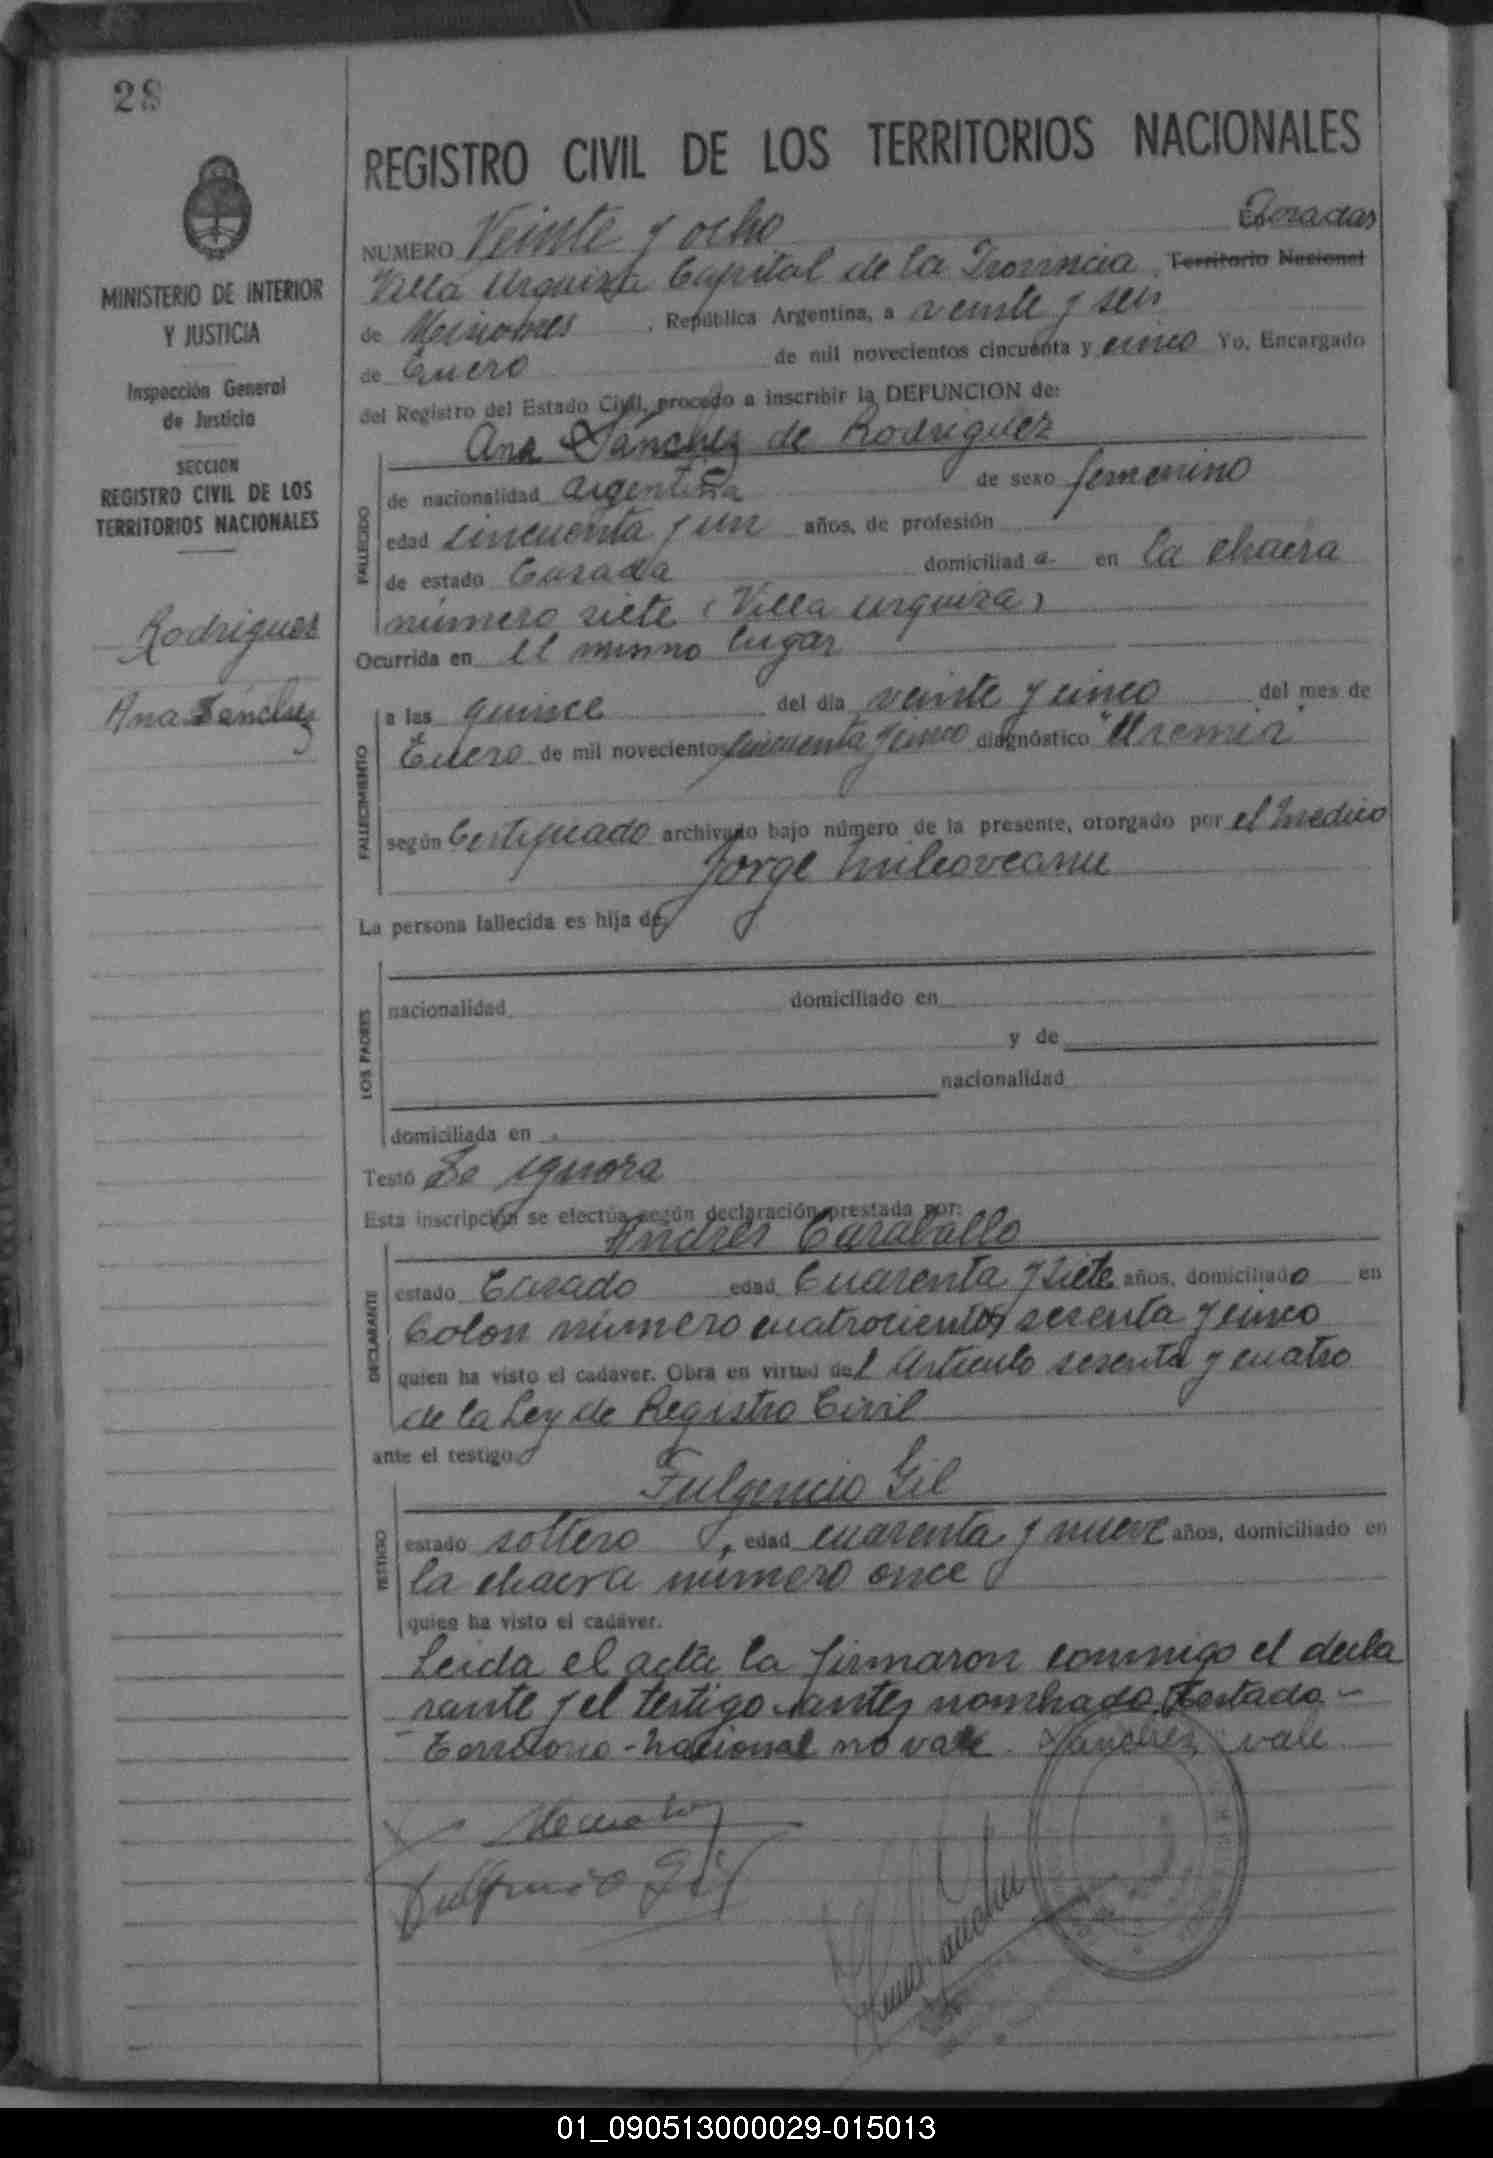 28
MINISTERIO DE INTERIOR
Y JUSTICIA
Inspección General
de Justicia
SECCION
REGISTRO CIVIL DE LOS
TERRITORIOS NACIONALES
Rodriguez
Ana Sánchez
REGISTRO CIVIL DE LOS TERRITORIOS NACIONALES
NUMERO Veinte y ocho En Posadas
Villa Urquiza Capital de la Provincia Territorio Nacional
de Misiones, República Argentina, a veinte y seis
de Enero de mil novecientos cincuenta y cinco Yo, Encargado
del Registro del Estado Civil, procedo a inscribir la DEFUNCION de:
Ana Sánchez de Rodriguez
FALLECIDO
de nacionalidad argentina de sexo femenino
edad cincuenta y un años, de profesión
de estado Casada domiciliad a en la chacra
número siete (Villa Urquiza)
Ocurrida en el mismo lugar
FALLECIMIENTO
a las quince del día veinte y cinco del mes de
Enero de mil novecientos cincuenta y cinco diagnóstico "Uremia"
según Certificado archivado bajo número de la presente, otorgado por el medico
Jorge Milcoveanu
La persona fallecida es hija de
LOS PADRES
nacionalidad domiciliado en
y de
nacionalidad
domiciliada en
Testó Se ignora
Esta inscripción se efectúa según declaración prestada por:
Andrés Caraballo
DECLARANTE
estado Casado edad Cuarenta y siete años, domiciliado en
Colon número cuatrocientos sesenta y cinco
quien ha visto el cadáver. Obra en virtud del Artículo sesenta y cuatro
de la Ley de Registro Civil
ante el testigo
Fulgencio Gil
TESTIGO
estado soltero, edad cuarenta y nueve años, domiciliado en
la chacra número once
quien ha visto el cadáver.
Leida el acta la firmaron conmigo el decla
rante y el testigo antes nombrado Testado -
Territorio - Nacional no vale. Sanchez vale
Fulgencio Gil
01_090513000029-015013